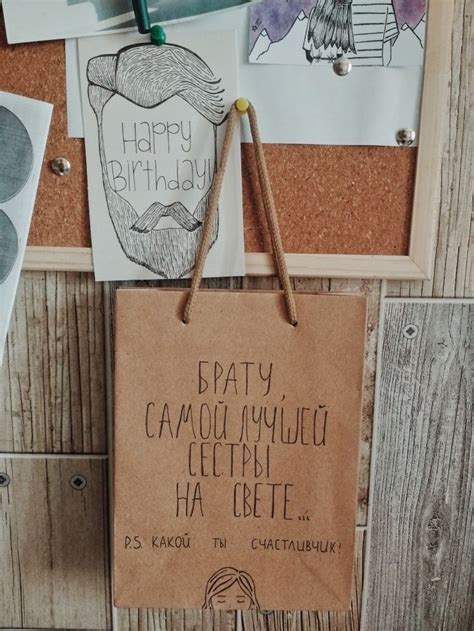 Happy
Birthday!
БРАТУ,
САМОЙ ЛУЧШЕЙ
СЕСТРЫ
НА СВЕТЕ...
P.S. КАКОЙ ТЫ СЧАСТЛИВЧИК!